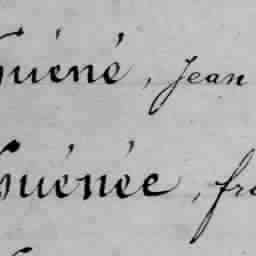 Guéné, Jean
Guénée, fra